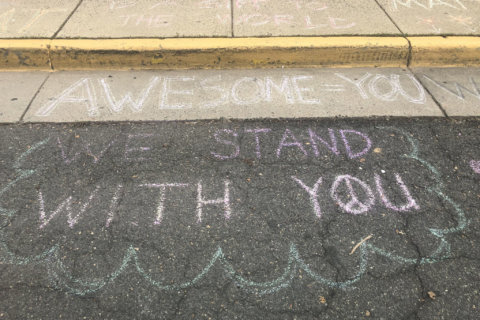 THE WORLD
AWESOME = YOU
WE STAND
WITH YOU